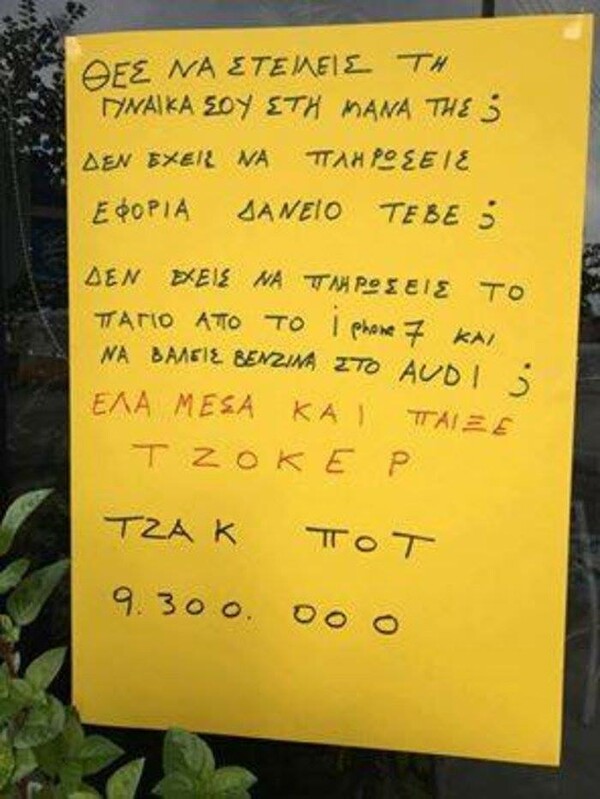 ΘΕΣ ΝΑ ΣΤΕΙΛΕΙΣ ΤΗ
ΓΥΝΑΙΚΑ ΣΟΥ ΣΤΗ ΜΑΝΑ ΤΗΣ ;
ΔΕΝ ΕΧΕΙΣ ΝΑ ΠΛΗΡΩΣΕΙΣ
ΕΦΟΡΙΑ ΔΑΝΕΙΟ ΤΕΒΕ ;
ΔΕΝ ΕΧΕΙΣ ΝΑ ΠΛΗΡΩΣΕΙΣ ΤΟ
ΠΑΓΙΟ ΑΠΟ ΤΟ i phone 7 ΚΑΙ
ΝΑ ΒΑΛΕΙΣ ΒΕΝΖΙΝΑ ΣΤΟ AUDI ;
ΕΛΑ ΜΕΣΑ ΚΑΙ ΠΑΙΞΕ
ΤΖΟΚΕΡ
ΤΖΑΚ ΠΟΤ
9.300.000